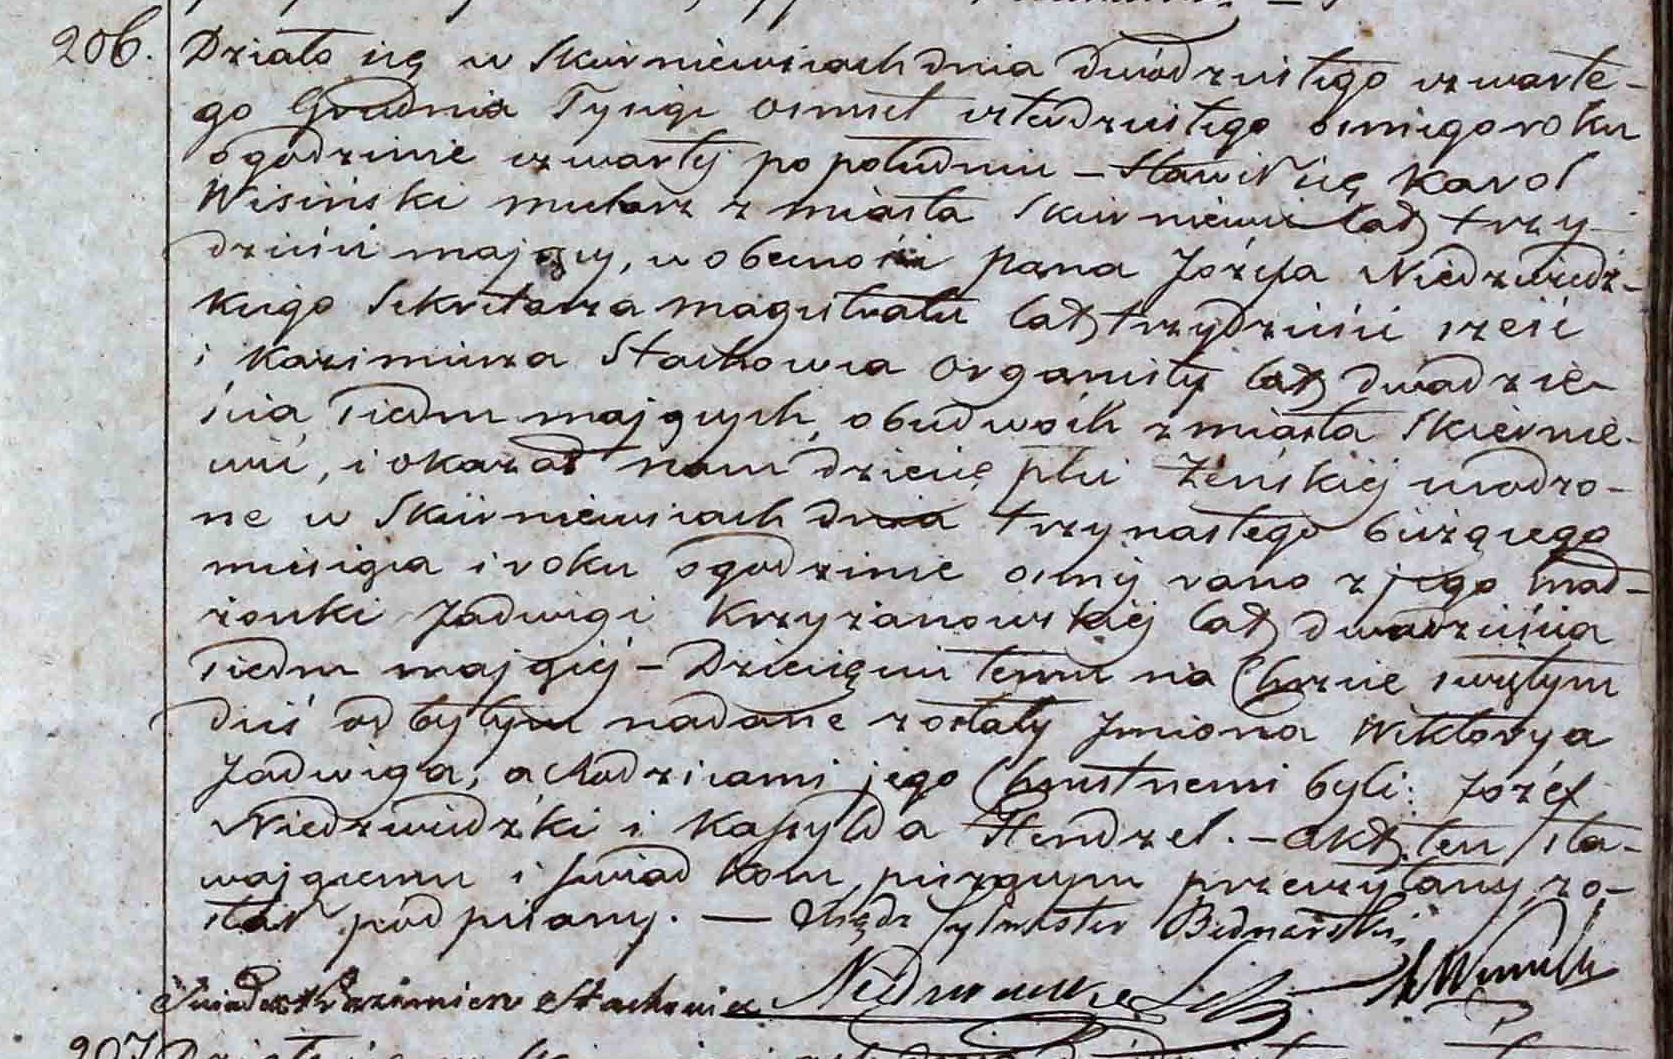 206. Działo się w Skierniewicach dnia dwódziestego czwarte-
go Grudnia Tysiąc osmset czterdziestego osmego roku
o godzinie czwartej po południu – Stawił się Karol
Wisiński mularz z miasta Skierniewic lat trzy-
dzieści mający, w obecności pana Józefa Niedzwiedz-
kiego Sekretarza magistratu lat trzydzieści sześć
i Kazimierza Stachowicza Organisty lat dwadzie-
ścia siedm mających, obudwóch z miasta Skiernie-
wic, i okazał nam dziecię płci Żeńskiej urodzo-
ne w Skierniewicach dnia trzynastego bieżącego
miesiąca i roku o godzinie osmej rano z jego Mał-
żonki Jadwigi Krzyżanowskiej lat dwadzieścia
siedm mającej – Dziecięciu temu na Chrzcie świętym
dziś odbytym nadane zostały Jmiona Wiktorya
Jadwiga, a Rodzicami jego Chrzestnemi byli: Józef
Niedzwiedzki i Kassylda Hendzel. – Akt ten sta-
wającemu i świadkom piszącym przeczytany, zo-
stał podpisany. — Xiądz Sylwester Bednarski
Świadek Kazimierz Stachowicz
207 Działo się w